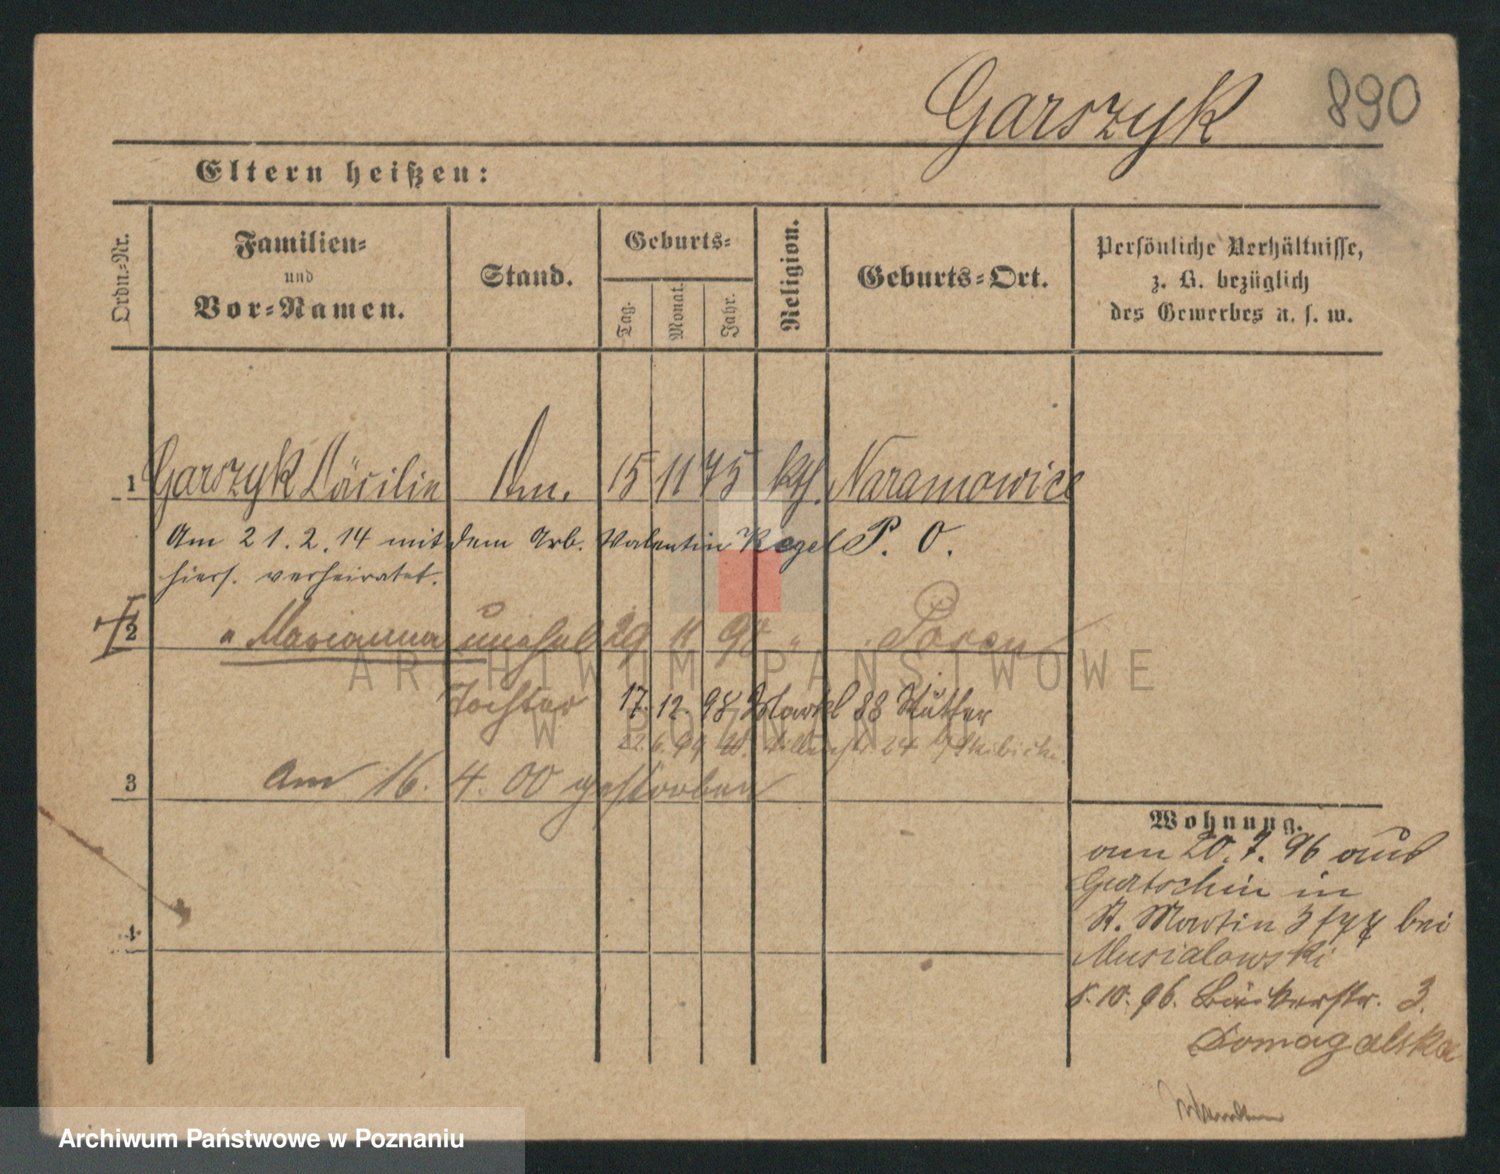 Garszyk 890
Eltern heißen:
Ordn.-Nr.
Familien-
und
Vor-Namen.
Stand.
Geburts-
Tag.
Monat.
Jahr.
Religion.
Geburts-Ort.
Persönliche Verhältnisse,
z. B. bezüglich
des Gewerbes u. s. w.
1 Garszyk Cäcilie 15 11 75 kth. Naramowice
Am 21.2.14 mit dem Arb. Valentin Kegel P. O.
hiers. verheiratet.
2 " Marianna unehel 29 11 98 " Posen
Tochter 17. 12. 98 88
24
3 Am 16. 4. 00 gestorben
Wohnung.
am 20.7.96 aus
Gurtschin in
St. Martin bei
Musialowski
8.10.96. Bäckerstr. 3.
Domagalska
4
ARCHIWUM PAŃSTWOWE
W POZNANIU
Archiwum Państwowe w Poznaniu